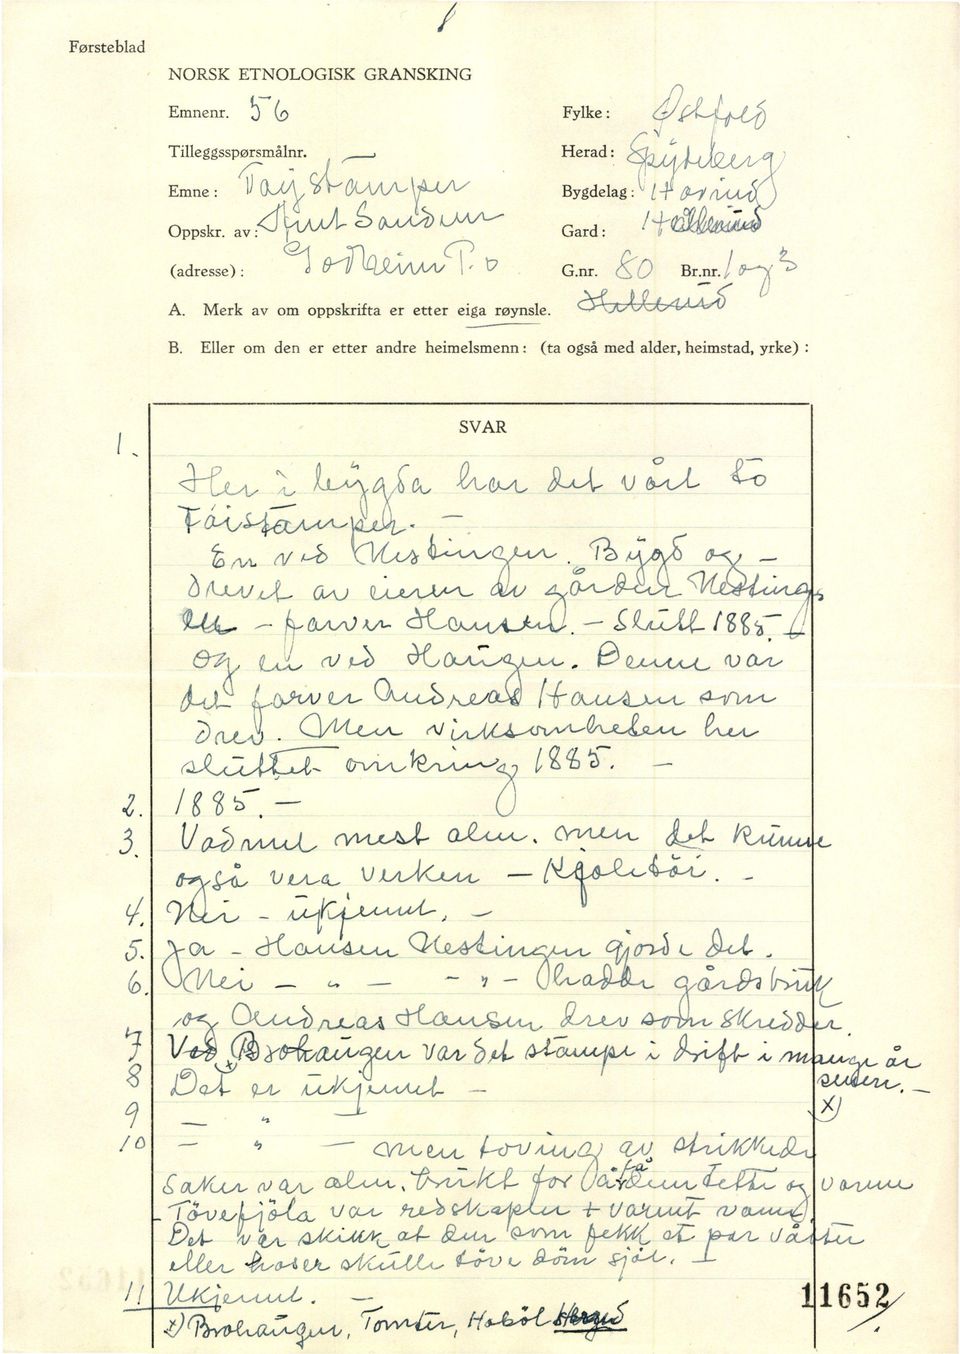 Førsteblad
NORSK ETNOLOGISK GRANSKING
Emnenr. 56
Fylke: Østfold
Tilleggsspørsmålnr. —
Herad: Spydeberg
Emne: Tøystamper
Bygdelag: Hovind
Oppskr. av: Knut Sandum
Gard:
(adresse): P.b
G.nr. 80 Br.nr. 1 og 3
Hellerud
A. Merk av om oppskrifta er etter eiga røynsle.
B. Eller om den er etter andre heimelsmenn: (ta også med alder, heimstad, yrke):
SVAR
1.
Her i bygda har det vært to
Tøistamper. —
En ved Nestingen. Bygd og —
drevet av eieren av gården Nesting
en — farver Hansen. — Slutt 1885.
og en ved Haugen. Denne var
det farver Andreas Hansen som
drev. Men virksomheten her
sluttet omkring 1885. —
2. 1885. —
3. Vadmel mest alm. men det kunne
også vera verken — Kjoletöi. -
4. Nei - ukjennt, —
5. Ja - Hansen Nestingen gjorde det.
6. Nei — " — - " - hadde gårdsbruk
og Andreas Hansen drev som Skredder.
7 Ved Brohaugen var det stampe i drift i mange år
x)
senere. —
8 Det er ukjennt —
x)
9 — " —
10 — " — men toving av strikkede
Saker var alm. brukt for å få dem tette og varme
Tövefjöla var redskaplen + varmt vann
Det var skikk at dem som fekk et par våtter
eller hoser skulle töve döm sjöl. —
11 Ukjennt. —
11652
x) Brohaugen, Tomter, Hobøl